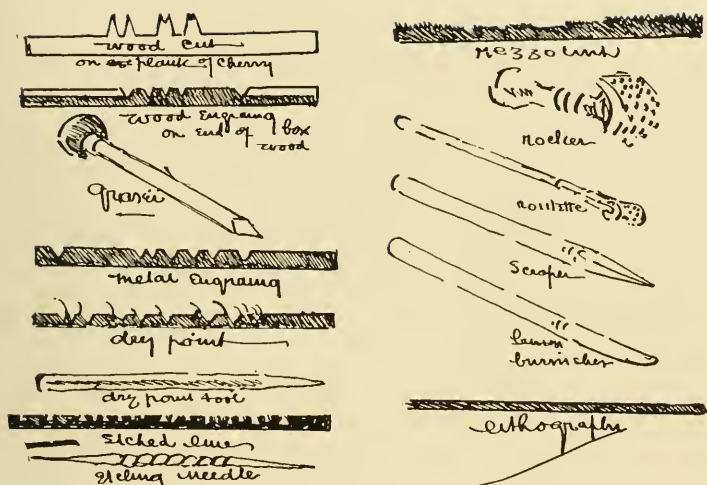 wood cut
on plank of cherry
wood Engraving
on End of box
wood
graver
metal Engraving
dry point
dry point tool
Etched line
Etching needle
Mezzotint
rocker
roulette
Scraper
burnisher
lithography